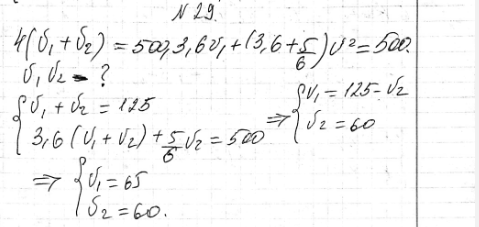 № 29.
4(v₁ + v₂) = 500, 3,6v₁ + (3,6 + 5/6)v² = 500.
v₁ v₂ - ?
{ v₁ + v₂ = 125
{ 3,6 (v₁ + v₂) + 5/6 v₂ = 500 ⇒ { v₁ = 125 - v₂
{ v₂ = 60
⇒ { v₁ = 65
{ v₂ = 60.